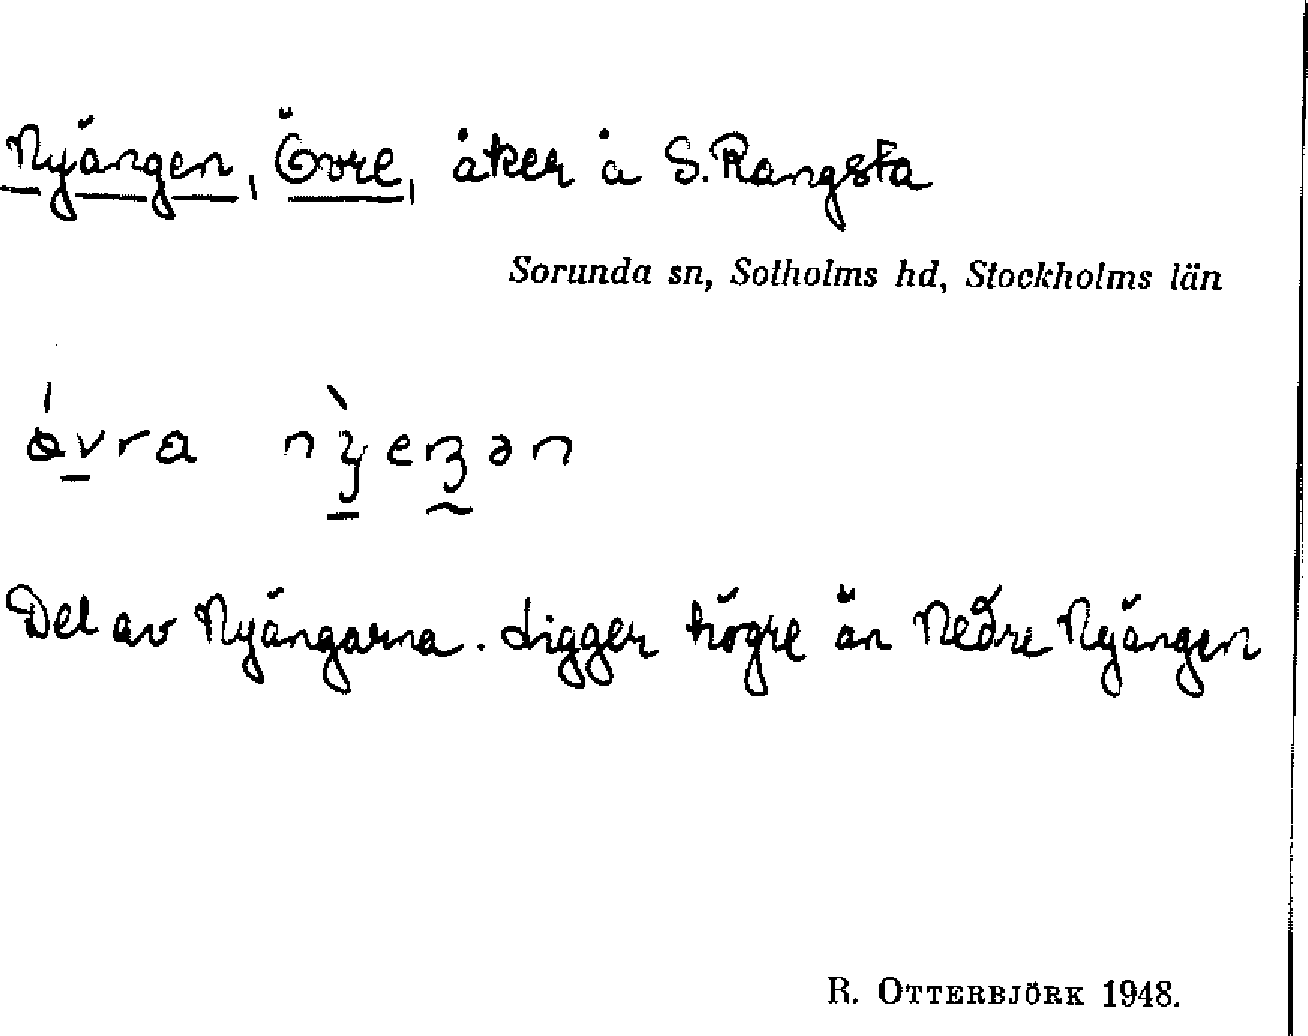 Nyängen, Övre, åker å S. Rangsta
Sorunda sn, Sotholms hd, Stockholms län
Del av Nyängarna. Ligger högre än Nedre Nyängen
R. OTTERBJÖRK 1948.